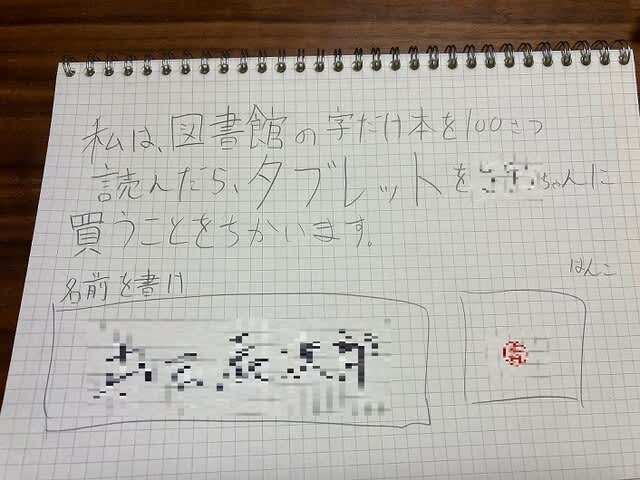 私は、図書館の字だけ本を100さつ
読んだら、タブレットを ちゃんに
買うことをちかいます。
名前を書け
はんこ